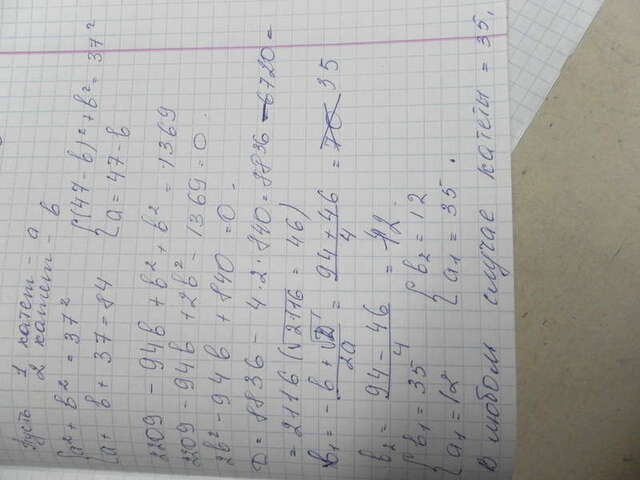 Пусть 1 катет - a
2 катет - b
{a² + b² = 37²
{a + b + 37 = 84
{(47 - b)² + b² = 37²
{a = 47 - b
2209 - 94b + b² + b² = 1369
2209 - 94b + 2b² - 1369 = 0.
2b² - 94b + 840 = 0.
D = 8836 - 4·2·840 = 8836 - 6720 =
= 2116 (√2116 = 46)
b₁ = -b + √D / 2a = 94 + 46 / 4 = 35
b₂ = 94 - 46 / 4 = 12.
{b₁ = 35 {b₂ = 12
{a₁ = 12 {a₁ = 35.
В любом случае катеты = 35,